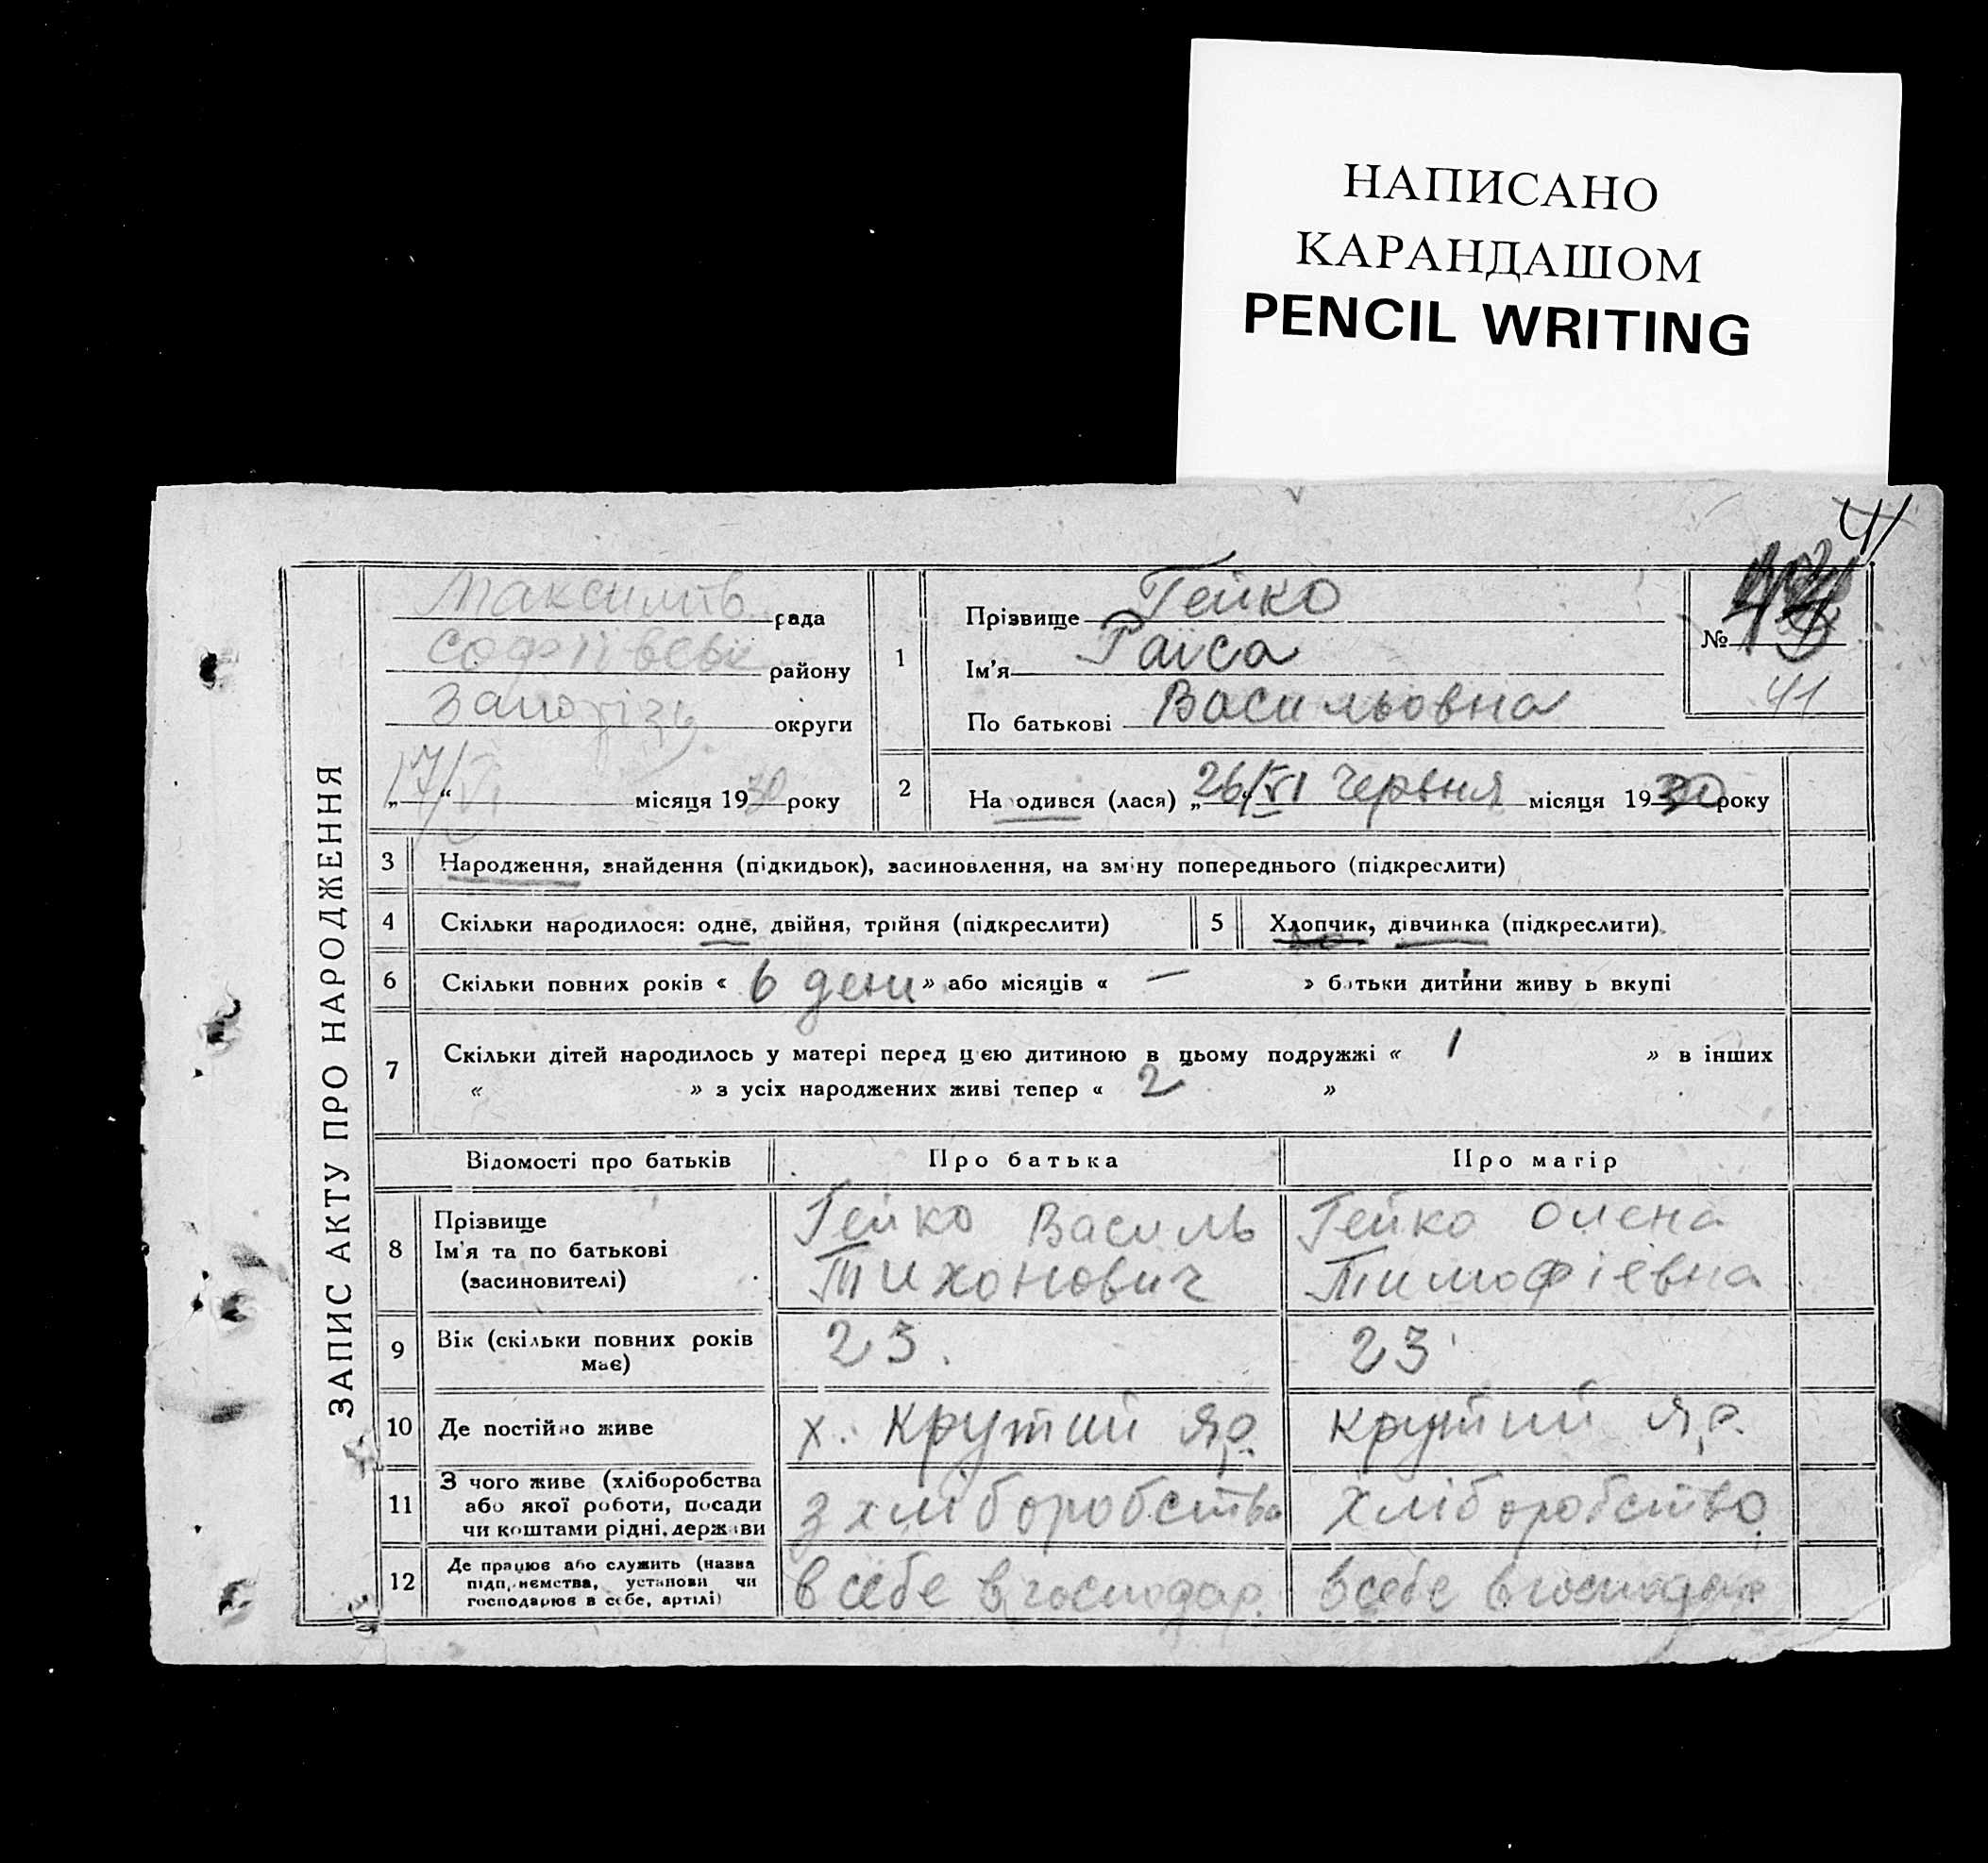 НАПИСАНО
КАРАНДАШОМ
PENCIL WRITING
41
ЗАПИС АКТУ ПРО НАРОДЖЕННЯ
Максимів рада
Софіївськ району
Запоріз округи
„17/VI“ місяця 1930 року
1
Прізвище Гейко
Ім'я Раїса
По батькові Васильовна
№
41
2
На одився (лася) „26/VI червня місяця 1930 року
3 Народження, знайдення (підкидьок), засиновлення, на зміну попереднього (підкреслити)
4 Скільки народилося: одне, двійня, трійня (підкреслити) 5 Хлопчик, дівчинка (підкреслити)
6 Скільки повних років « 6 дени » або місяців « — » батьки дитини живу ь вкупі
7 Скільки дітей народилось у матері перед цією дитиною в цьому подружжі « 1 » в інших
« » з усіх народжених живі тепер « 2 »
Відомості про батьків Про батька Про матір
8 Прізвище
Ім'я та по батькові
(засиновителі)
Гейко Василь
Тихонович
Гейко Олена
Тимофіёвна
9 Вік (скільки повних років
має)
23. 23
10 Де постійно живе х. Крутий Яр. Крутий Яр.
11 З чого живе (хліборобства
або якої роботи, посади
чи коштами рідні, держави
з хліборобства хліборобство
12 Де працює або служить (назва
підприємства, установи чи
господарює в себе, артілі)
в себе в господар. в себе в господар